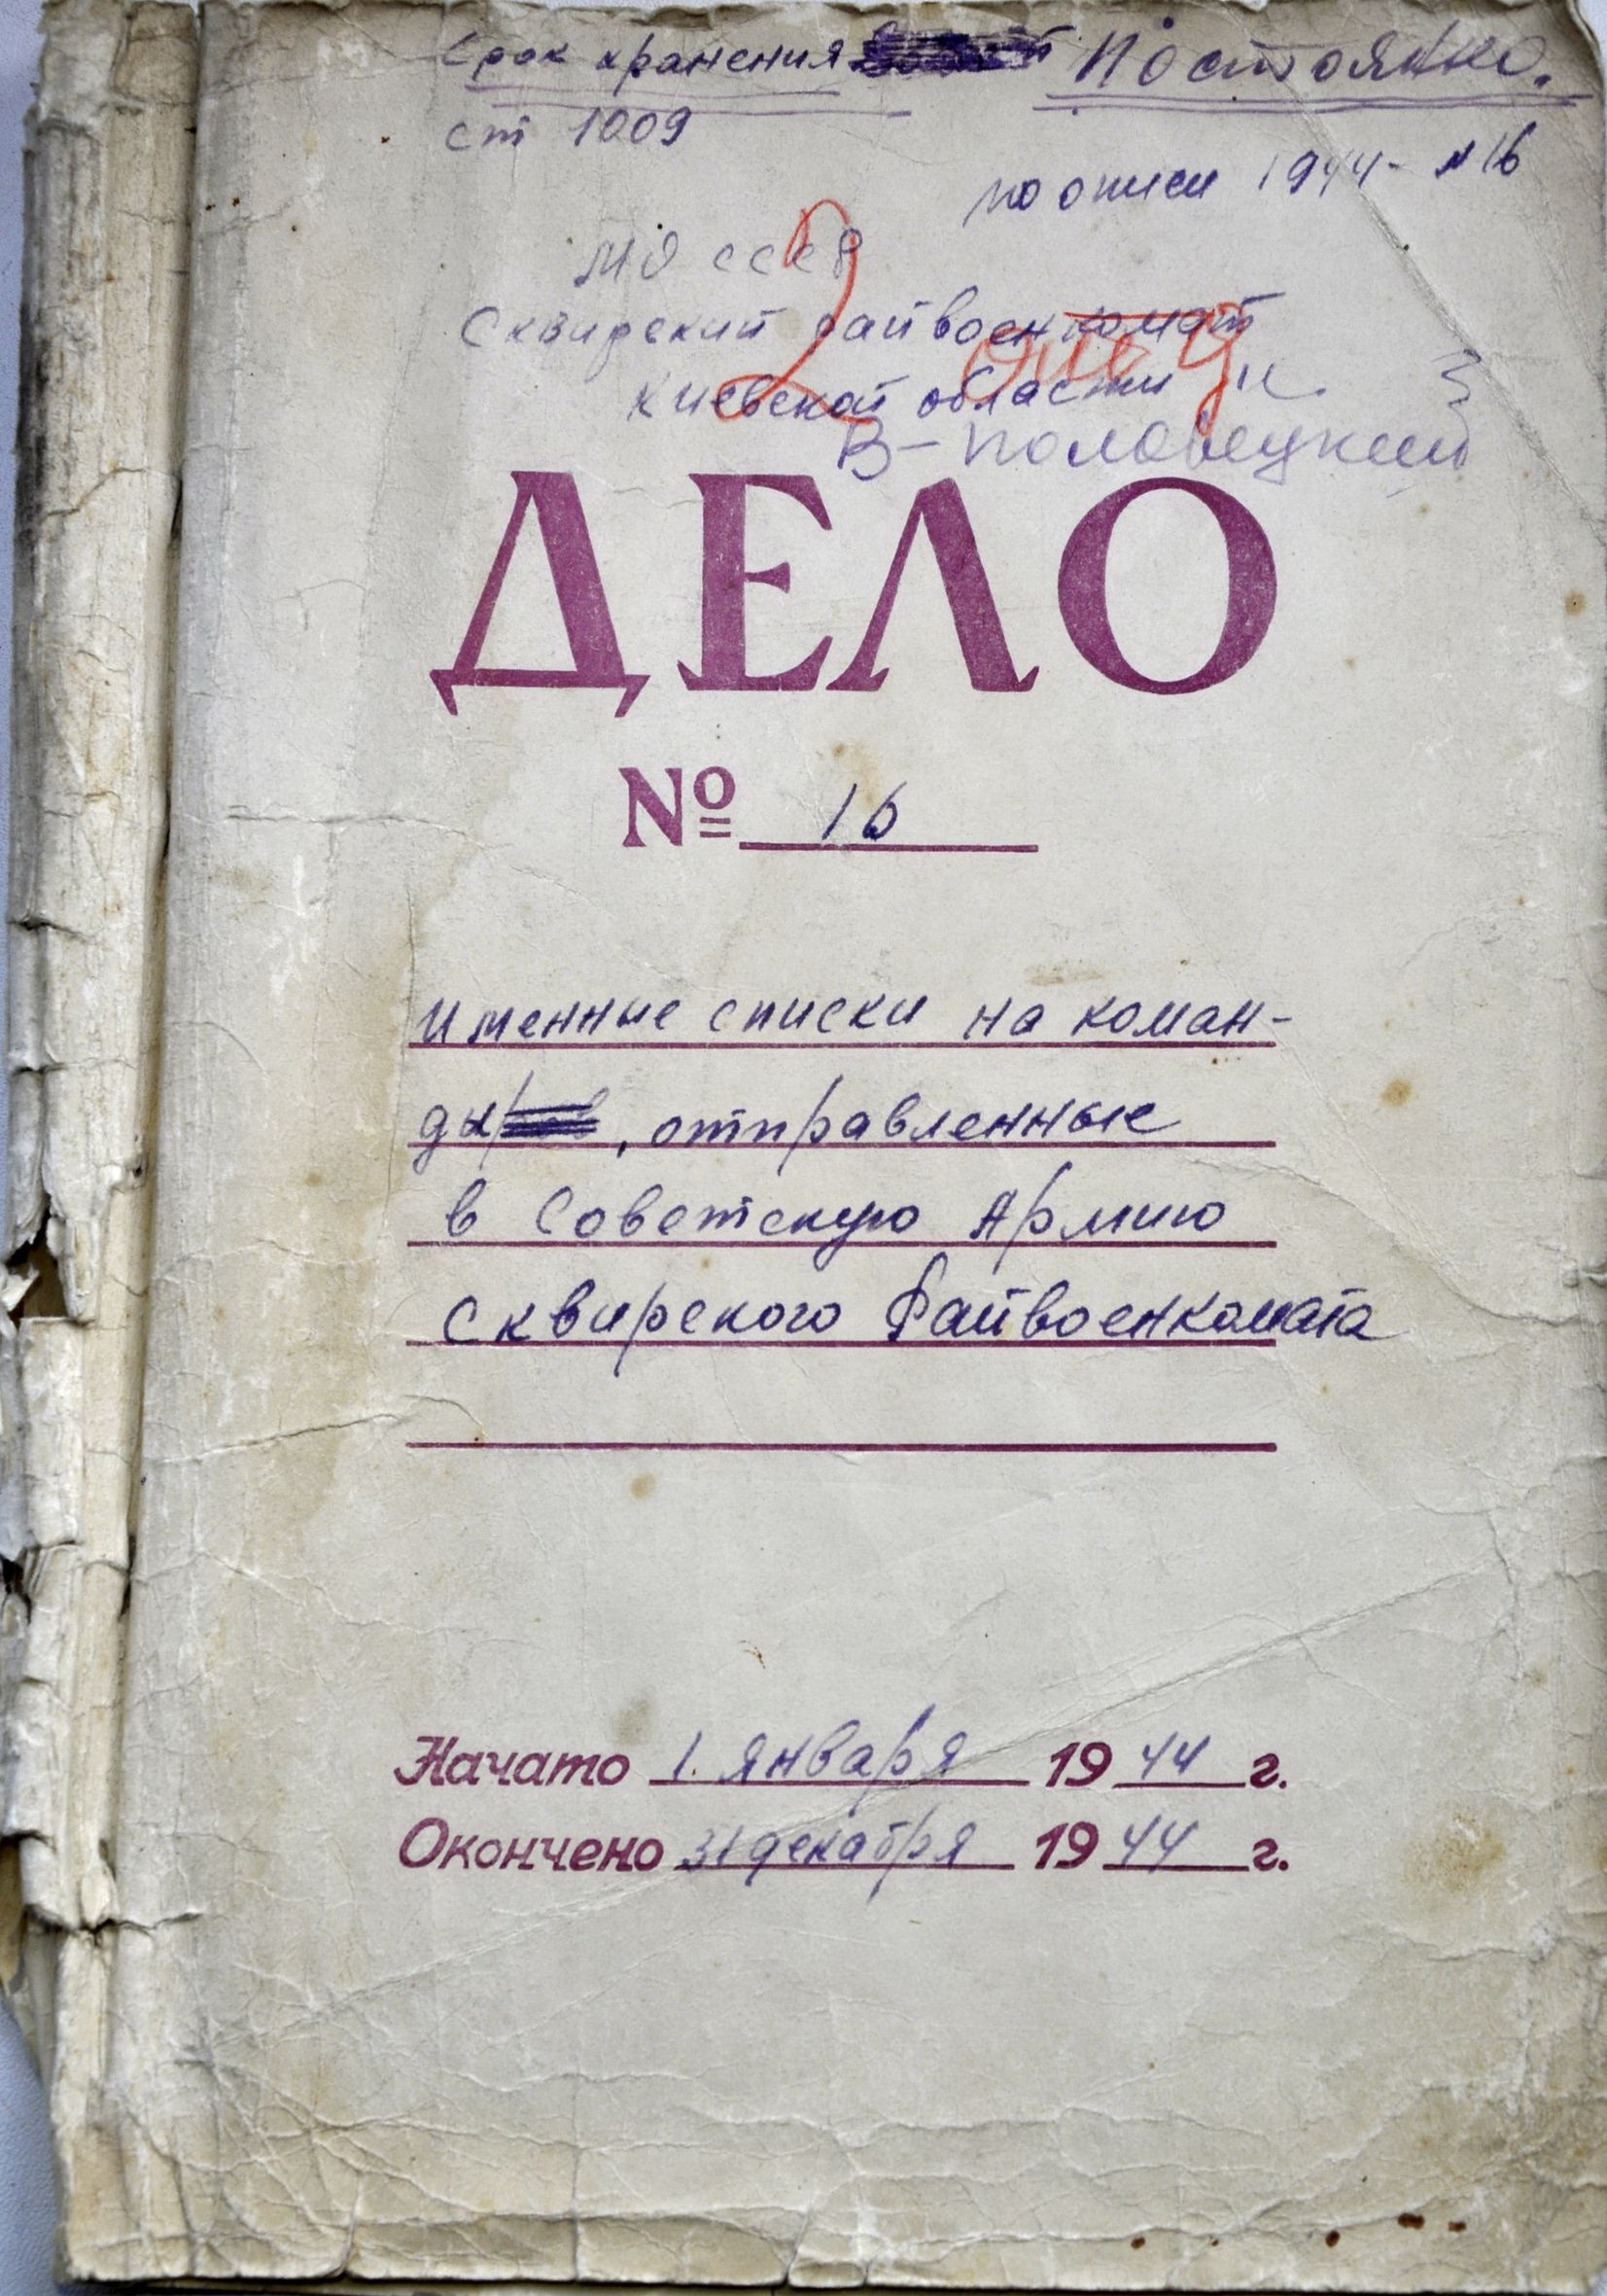 Срок хранения Постоянно.
ст 1009
по описи 1944- N 16
МО СССР
Сквирский райвоенкомат
Киевской области
В-Половецкий
ДЕЛО
№ 16
Именные списки на коман-
ды, отправленные
в Советскую Армию
Сквирского Райвоенкомата
Начато 1. января 1944 г.
Окончено 31 декабря 1944 г.